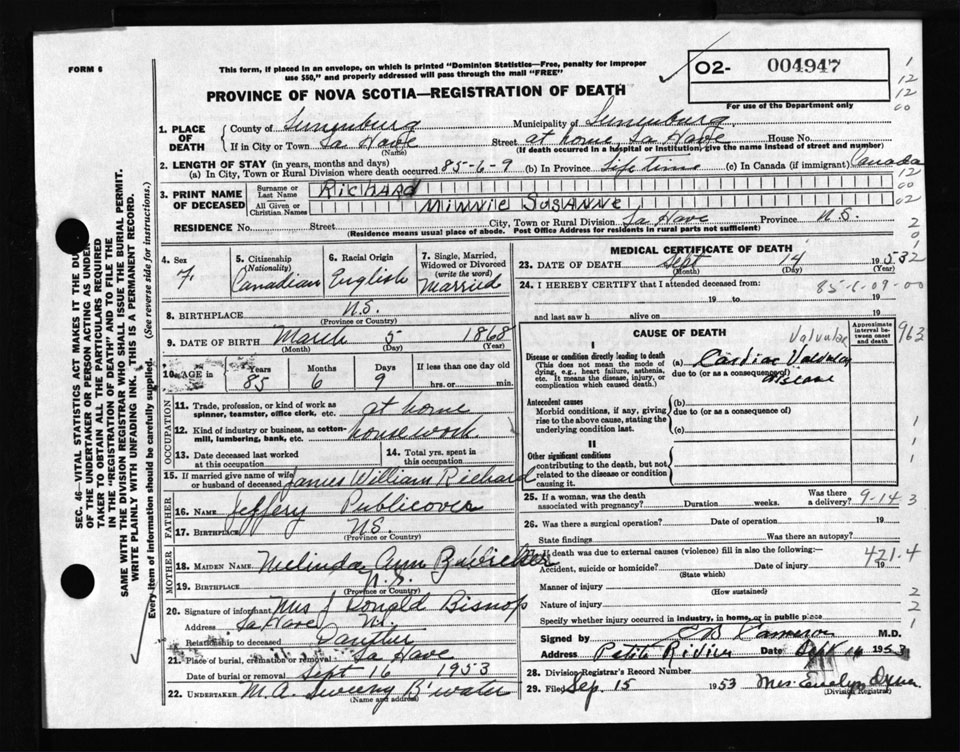 FORM 6
This form, if placed in an envelope, on which is printed "Dominion Statistics—Free, penalty for improper
use $50," and properly addressed will pass through the mail "FREE"
O2- 004947
For use of the Department only
PROVINCE OF NOVA SCOTIA—REGISTRATION OF DEATH
1. PLACE OF DEATH
County of Lunenburg Municipality of Lunenburg
If in City or Town La Have Street at home, La Have House No.
(Name) (If death occurred in a hospital or institution, give the name instead of street and number)
2. LENGTH OF STAY (in years, months and days)
(a) In City, Town or Rural Division where death occurred 85-6-9 (b) In Province Life time (c) In Canada (if immigrant) Canada
3. PRINT NAME OF DECEASED
Surname or Last Name RICHARD
All Given or Christian Names MINNIE SUSANNE
RESIDENCE No. Street City, Town or Rural Division La Have Province N.S.
(Residence means usual place of abode. Post Office Address for residents in rural parts not sufficient)
4. Sex F.
5. Citizenship (Nationality) Canadian
6. Racial Origin English
7. Single, Married, Widowed or Divorced (write the word) Married
8. BIRTHPLACE N.S.
(Province or Country)
9. DATE OF BIRTH March 5 1868
(Month) (Day) (Year)
10. AGE in Years 85 Months 6 Days 9 If less than one day
hrs. or min.
OCCUPATION
11. Trade, profession or kind of work as
spinner, teamster, office clerk, etc. at home
12. Kind of industry or business, as cotton-
mill, lumbering, bank, etc. housework
13. Date deceased last worked
at this occupation
14. Total yrs. spent in
this occupation
15. If married give name of wife
or husband of deceased James William Richard
FATHER
16. NAME Jeffery Publicover
17. BIRTHPLACE N.S.
(Province or Country)
MOTHER
18. MAIDEN NAME Melinda Ann
19. BIRTHPLACE N.S.
(Province or Country)
20. Signature of informant Mrs J Donald Bishop
Address La Have N.S.
Relationship to deceased
21. Place of burial, cremation or removal La Have
Date of burial or removal Sept 16 1953
22. UNDERTAKER M.A. Sweeny B'water
(Name and address)
MEDICAL CERTIFICATE OF DEATH
23. DATE OF DEATH Sept 14 1953
(Month) (Day) (Year)
24. I HEREBY CERTIFY that I attended deceased from:
19 to 19
and last saw h alive on 19
85-6-09-00
CAUSE OF DEATH
Approximate interval between onset and death
I
Disease or condition directly leading to death
(This does not mean the mode of
dying, e.g., heart failure, asthenia,
etc. It means the disease, injury, or
complication which caused death.)
Valvular
(a) Cardiac Valvular
due to (or as a consequence of)
disease
Antecedent causes
Morbid conditions, if any, giving
rise to the above cause, stating the
underlying condition last.
(b)
due to (or as a consequence of)
(c)
II
Other significant conditions
contributing to the death, but not
related to the disease or condition
causing it.
25. If a woman, was the death
associated with pregnancy? Duration weeks. Was there
a delivery? 9-14 3
26. Was there a surgical operation? Date of operation 19
State findings Was there an autopsy?
If death was due to external causes (violence) fill in also the following:
Accident, suicide or homicide? Date of injury 19
(State which)
421.4
Manner of injury
(How sustained)
Nature of injury
Specify whether injury occurred in industry, in home, or in public place
Signed by C B Cameron M.D.
Address Petit Riviere Date Sept 14 1953
28. Division Registrar's Record Number
29. Filed Sep. 15 1953 Mrs. Evelyn
(Division Registrar)
SEC. 46—VITAL STATISTICS ACT MAKES IT THE DUTY
OF THE UNDERTAKER OR PERSON ACTING AS UNDER-
TAKER TO OBTAIN ALL THE PARTICULARS REQUIRED
IN THE "REGISTRATION OF DEATH" AND TO FILE THE
SAME WITH THE DIVISION REGISTRAR WHO SHALL ISSUE THE BURIAL PERMIT.
WRITE PLAINLY WITH UNFADING INK. THIS IS A PERMANENT RECORD.
Every item of information should be carefully supplied. (See reverse side for instructions.)